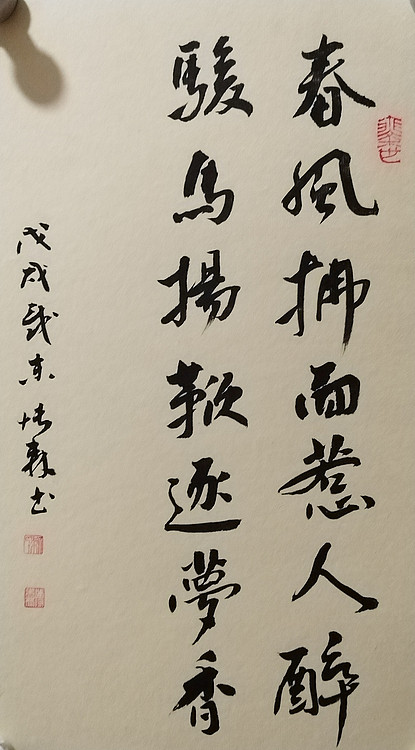 春風拂面惹人醉
駿馬揚鞭逐夢香
戊戌